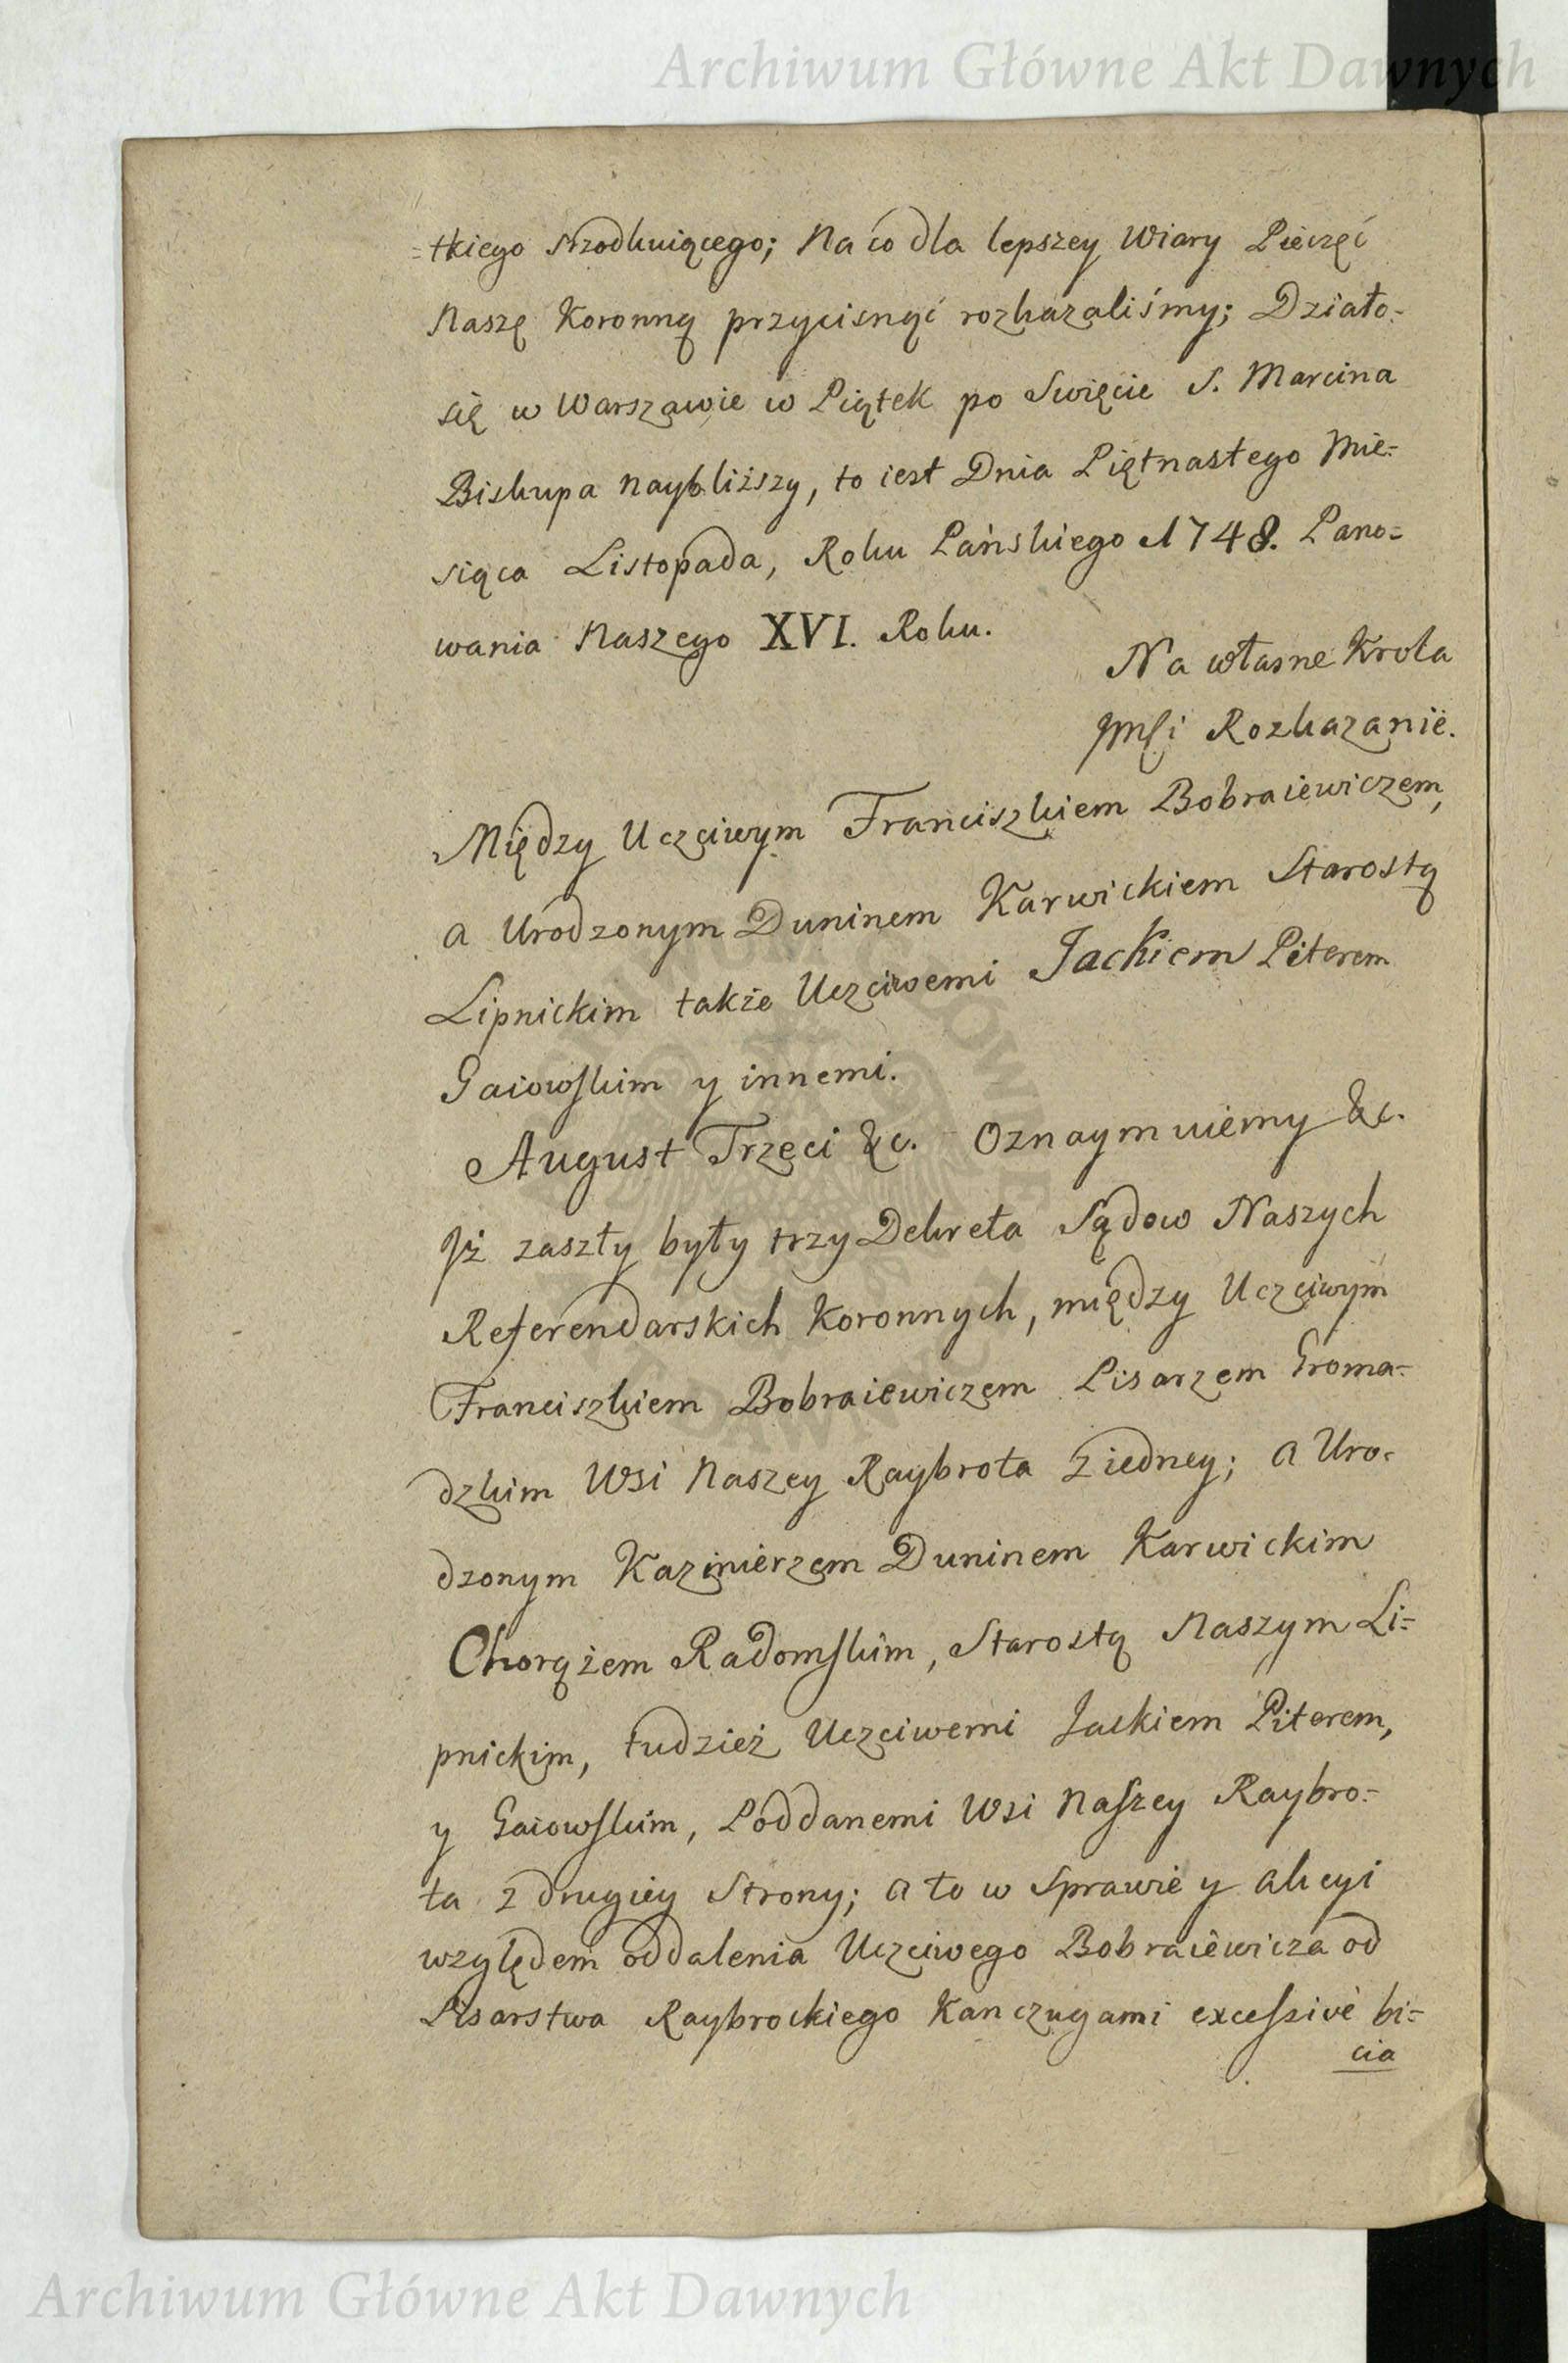 Archiwum Główne Akt Dawnych
=tkiego szkodkuiącego; Na co dla lepszey Wiary Pieczęć
Naszę Koronną przycisnąć rozkazaliśmy; Działo=
się w Warszawie w Piątek po Swięcie S. Marcina
Biskupa naybliższy, to iest Dnia Piętnastego Mie=
siąca Listopada, Roku Pańskiego 1748. Pano=
wania Naszego XVI. Roku.
Na własne Krola
Jmsi Rozkazanie.
Między Uczciwym Franciszkiem Bobraiewiczem,
a Urodzonym Duninem Karwickiem Starostą
Lipnickim także Uczciwemi Jackiem Piterem
Gaiowskim y innemi.
August Trzeci &c. Oznaymuiemy &c.
Jż zaszły były trzy Dekreta Sądow Naszych
Referendarskich Koronnych, między Uczciwym
Franciszkiem Bobraiewiczem Pisarzem Groma=
dzkim Wsi Naszey Raybrota z iedney; a Uro=
dzonym Kazimierzem Duninem Karwickim
Chorążem Radomskim, Starostą Naszym Li=
pnickim, tudzież Uczciwemi Jackiem Piterem,
y Gaiowskim, Poddanemi Wsi Naszey Raybro=
ta z drugiey Strony; a to w Sprawie y akcyi
względem oddalenia Uczciwego Bobraiewicza od
Pisarstwa Raybrockiego Kanczugami excessive bi=
cia
Archiwum Główne Akt Dawnych